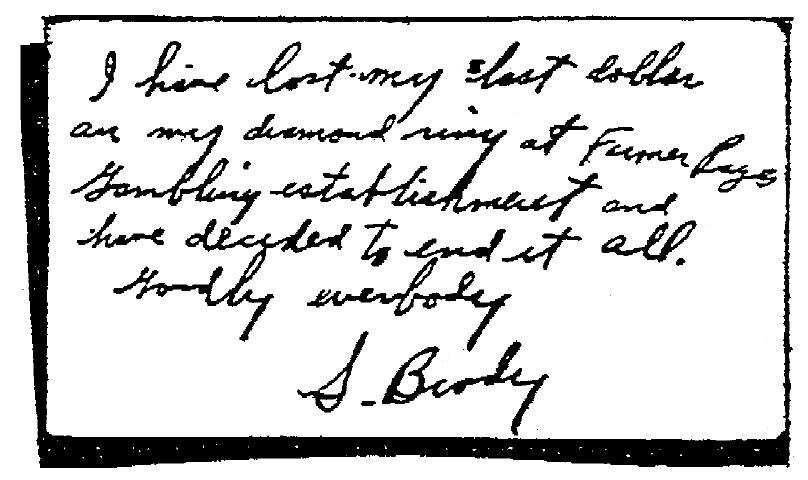 I have lost my last dollar
an my diamond ring at Farmer Pages
Gambling establishment and
have decided to end it all.
Goodby everbody
S. Brody